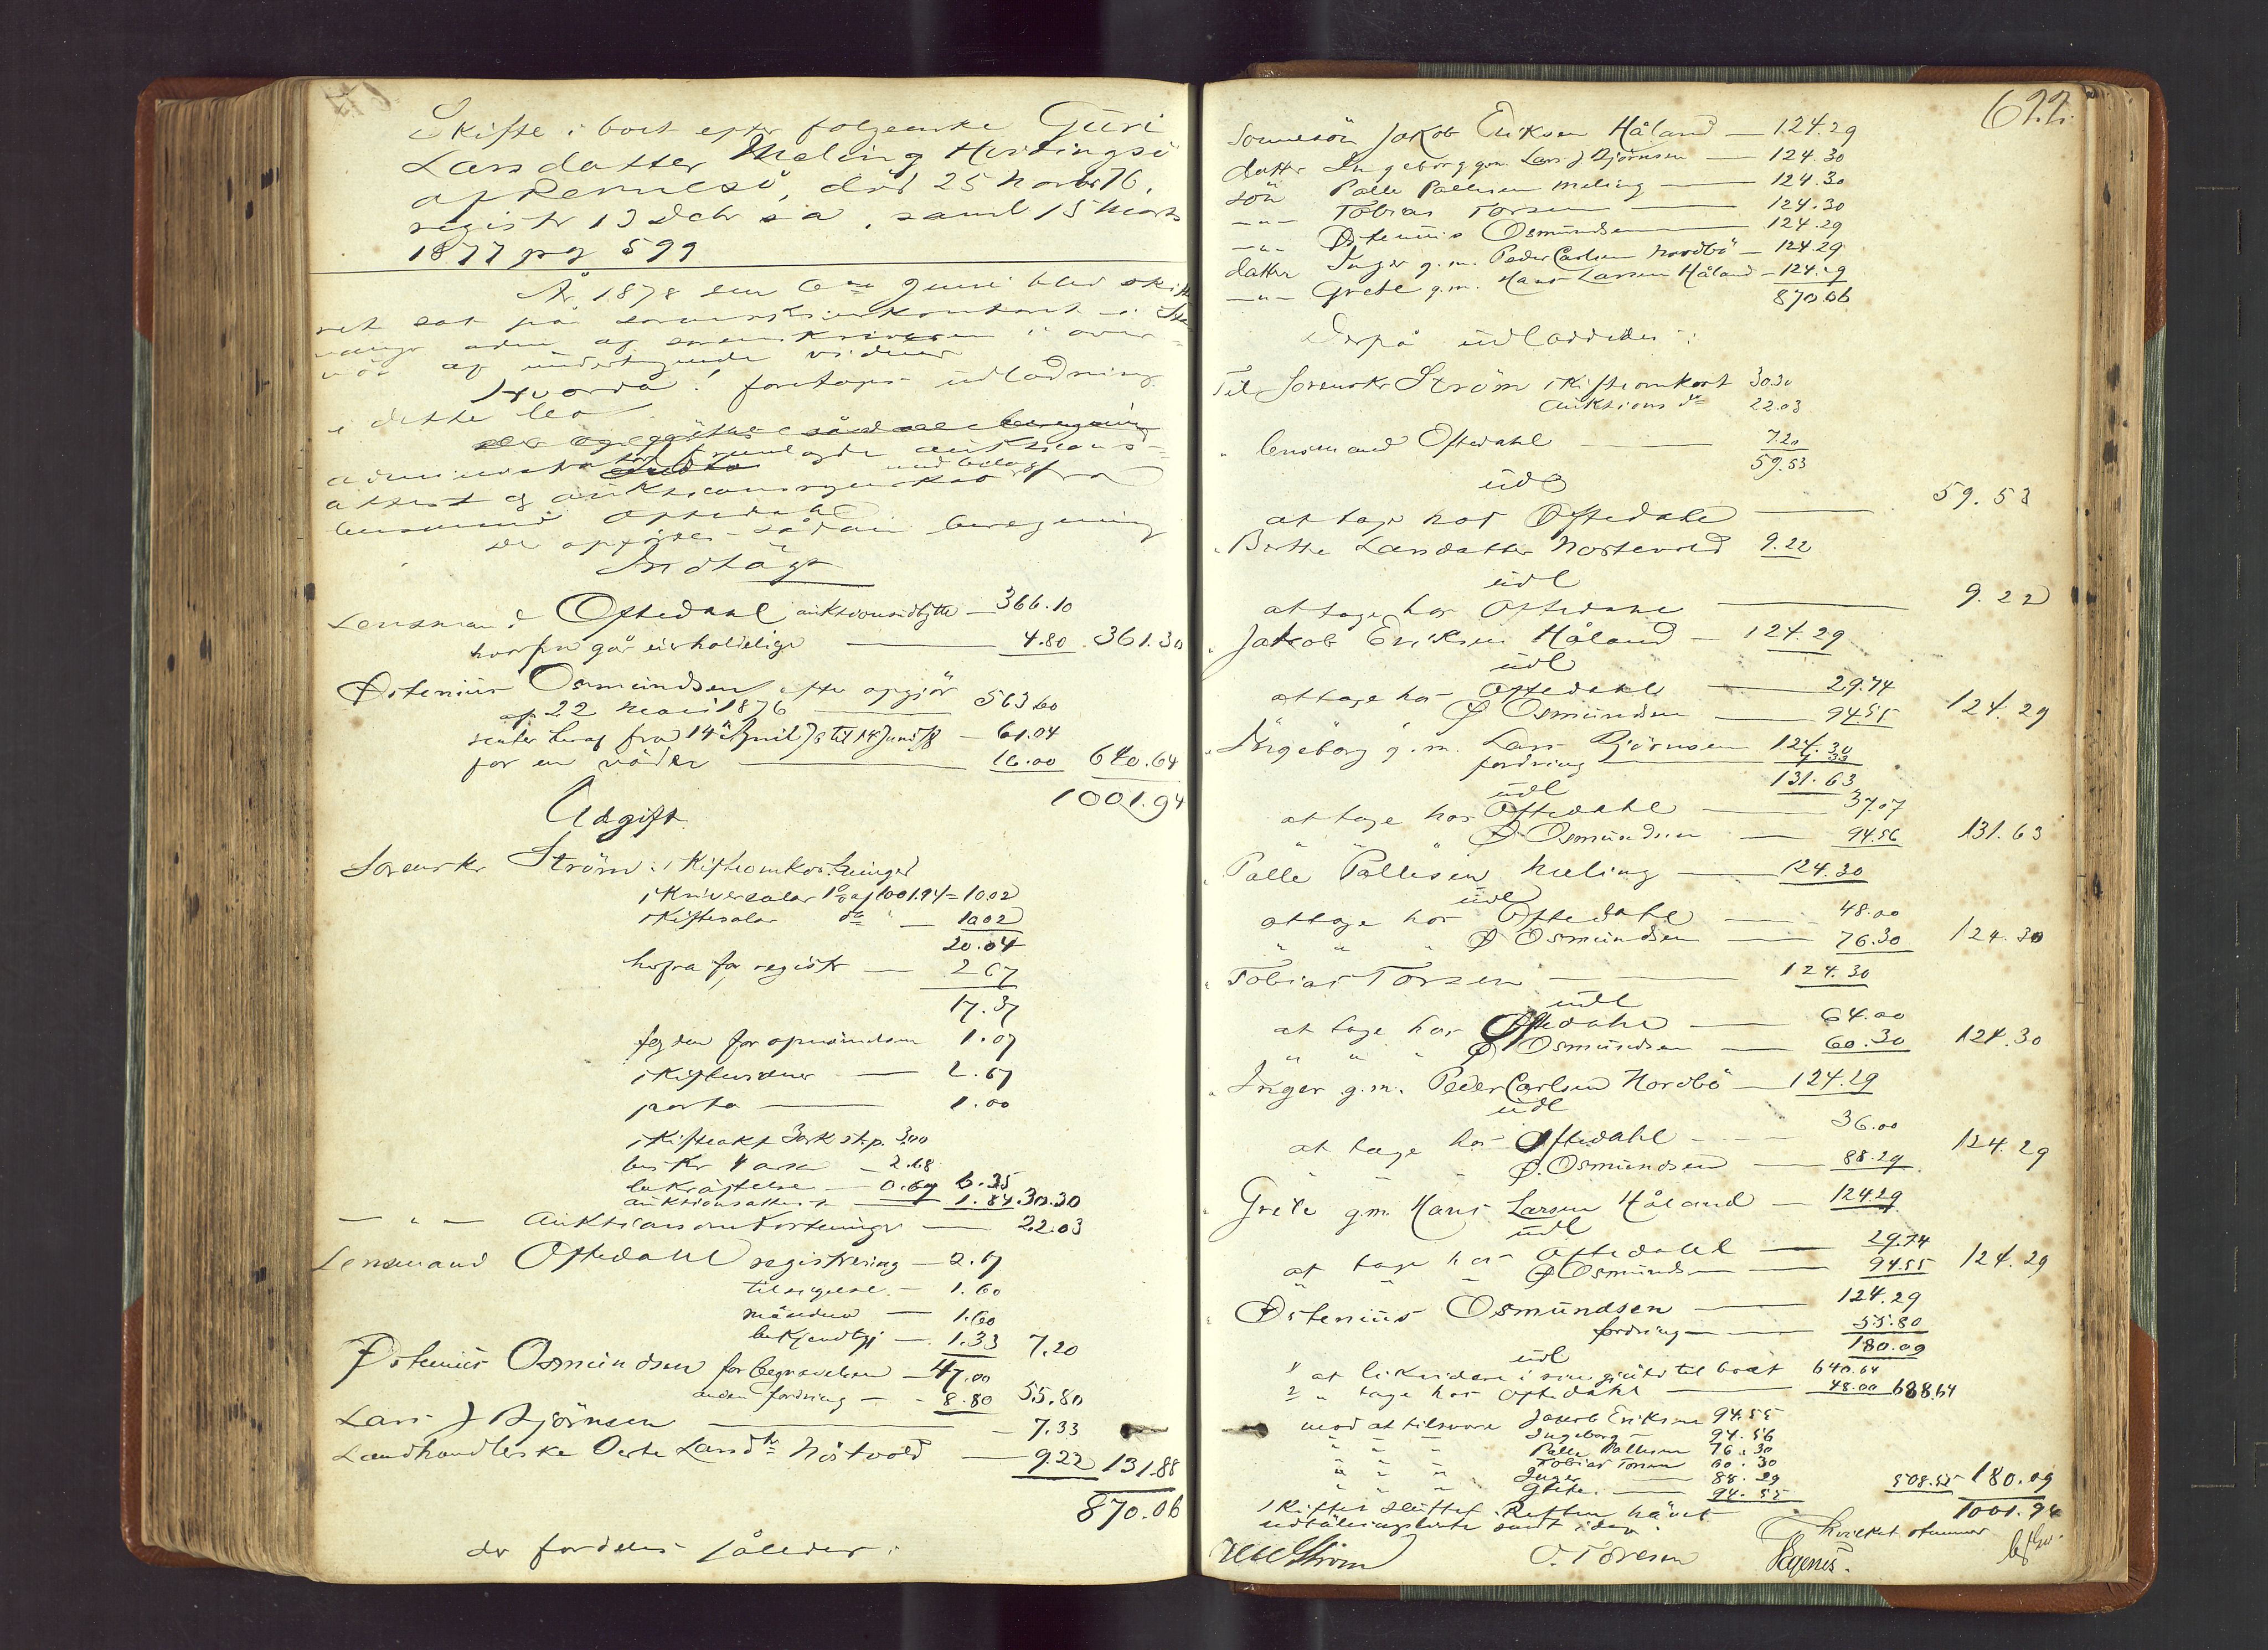 Skifte i boet efter følgerske Guri
Larsdatter Meling Hestingsö
af Rennesö, död 25 Novbr 76,
registr 13 Decbr s a, samt 15 Marts
1877 pag 599
År 1878 den 6te Juni blev skifte
ret sat på sorenskriverkontoret i Sta
vanger aden af sorenskriveren i over
vær af undertegnede vidner
Hvorda: foretoges udlodning
i dette bo
administrator fremlagde auktions-
attest og auktionsregnskab med bilag fra
lensmand Oftedahl
der opgjöres sådan beregning
Indtägt
Lensmand Oftedahl auktionsudbytte — 366.10
hvorfra går uerholdelige — 4.80 . 361.30
Østenius Osmundsen efter opgjör
af 22 Mai 1876 — 563.60
renter heraf fra 14 April 76 til 14 Juni 78 — 61.04
for en — 16.00 640.64
1001.94
Udgift
Sorenskr Ström: skifteomkostninger
skriversalar 1% af 1001.94 = 10.02
skiftesalar do — 10.02
20.04
herfra for registr — 2.67
17.37
fogden for opnävnelsen 1.07
skiftevidner — 2.67
porto — 1.00
skifteakt 3 ark st.p. 3.00
beskr 4 ark — 2.68
bekräftelse — 0.67 6.35
auktionsattest — 1.84 . 30.30
— " — Auktionsomkostninger — 22.03
Lensmand Oftedahl registrering — 2.67
tilsigelse — 1.60
mändene — 1.60
bekjendtgj — 1.33 7.20
Østenius Osmundsen for begravelsen — 47.00
anden fordring — 8.80 55.80
Lars J Björnsen — 7.33
Landhandlerske Berte Larsdtr Nåtvold — 9.22 131.88
870.06
der fordeles således:
677.
Sönnesön Jakob Eriksen Håland — 124.29
datter Ingeborg g.m. Lars J Bjørnsen — 124.30
sön Palle Pallesen Meling — 124.30
— " — Tobias Torsen — 124.30
— " — Østenius Osmundsen — 124.29
datter Inger g.m. Peder Carlsen Nordbö — 124.29
— " — Grete g.m. Hans Larsen Håland — 124.29
870.06
Derpå udloddedes:
Til Sorenskr Ström skifteomkost 30.30
auktions do 22.03
" lensmand Oftedahl — 7.20
59.53
udl
at tage hos Oftedahl — 59.53
" Berthe Larsdatter Nostevold 9.22
udl
at tage hos Oftedahl — 9.22
" Jakob Eriksen Håland — 124.29
udl
at tage hos Oftedahl — 29.74
Ø Osmundsen — 94.55 124.29
" Ingeborg g.m. Lars Bjørnsen 124.30
fordring — 7.33
131.63
udl
at tage hos Oftedahl — 37.07
" " " Ø Osmundsen — 94.56 131.63
" Palle Pallesen Meling — 124.30
udl
at tage hos Oftedahl — 48.00
" " " Ø Osmundsen — 76.30 124.30
" Tobias Torsen — 124.30
udl
at tage hos Oftedahl — 64.00
" " " Ø Osmundsen — 60.30 124.30
" Inger g.m. Peder Carlsen Nordbö — 124.29
udl
at tage hos Oftedahl — 36.00
" " " Ø. Osmundsen — 88.29 124.29
" Grete g.m. Hans Larsen Håland — 124.29
udl
at tage hos Oftedahl — 29.74
" " " Ø Osmundsen — 94.55 124.29
" Østenius Osmundsen — 124.29
fordring — 55.80
180.09
udl
1 at likvidere i sin gjäld til boet 640.64
2 " tage hos Oftedahl — 48.00 688.64
mod at tilsvare Jakob Eriksen 94.55
" " " Ingeborg — 94.56
" " " Palle Pallesen 76.30
" " " Tobias Torsen 60.30
" " " Inger — 88.29
" " " Grete — 94.55 508.55 180.09
1001.94
Skiftet sluttet. Retten hävet
hvilket stemmer
Ström O. Toresen